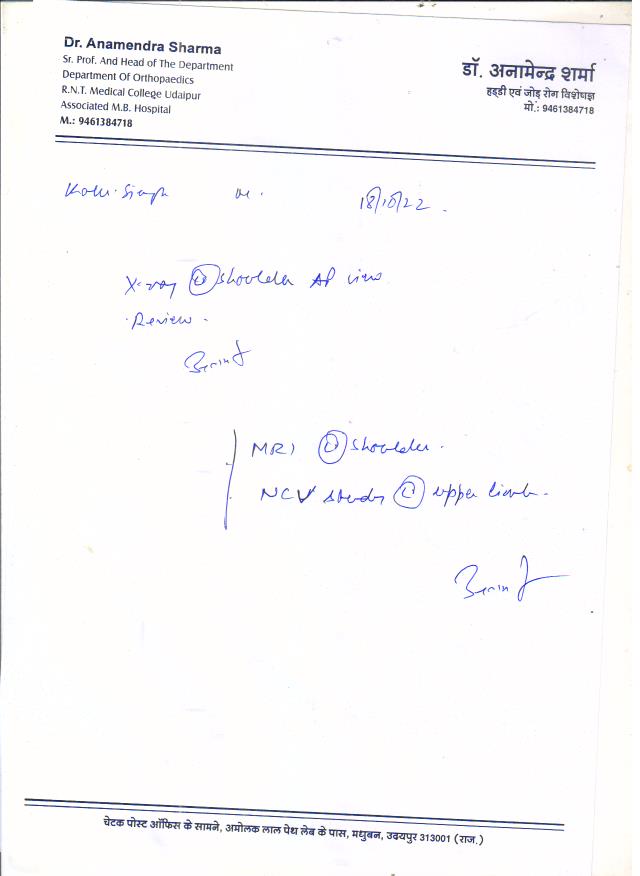 Dr. Anamendra Sharma
Sr. Prof. And Head of The Department
Department Of Orthopaedics
R.N.T. Medical College Udaipur
Associated M.B. Hospital
M.: 9461384718
डॉ. अनामेन्द्र शर्मा
हड्डी एवं जोड़ रोग विशेषज्ञ
मो.: 9461384718
Singh M. 18/10/22.
X-ray (L) shoulder AP view
Review.
MRI (L) shoulder.
NCV study (L) upper limb.
चेटक पोस्ट ऑफिस के सामने, अमोलक लाल पेथ लेब के पास, मधुबन, उदयपुर 313001 (राज.)